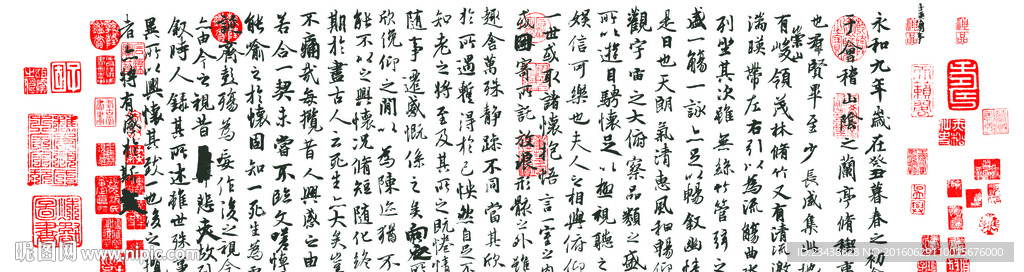 永和九年歲在癸丑暮春之初
于會稽山陰之蘭亭脩稧
也群賢畢至少長咸集此
崇山
有峻領茂林脩竹又有清流激
湍暎帶左右引以為流觴曲水
列坐其次雖無絲竹管弦之
盛一觴一詠亦足以暢敘幽情
是日也天朗氣清惠風和暢仰
觀宇宙之大俯察品類之盛
所以遊目騁懷足以極視聽
娛信可樂也夫人之相與俯仰
一世或取諸懷抱悟言一室之內
或因寄所託放浪形骸之外雖
趣舍萬殊靜躁不同當其欣
於所遇蹔得於己怏然自足不
知老之將至及其所之既惓情
隨事遷感慨係之矣向之
欣俛仰之閒以為陳迹猶不
能不以之興懷況脩短隨化終
期於盡古人云死生亦大矣豈
不痛哉每攬昔人興感之由
若合一契未嘗不臨文嗟悼
能喻之於懷固知一死生為
誕齊彭殤為妄作後之視今
亦由今之視昔悲夫故列
敘時人錄其所述雖世殊事
異所以興懷其致一也後之攬
者亦將有感於斯文
昵图网 www.nipic.com
ID:23436828 NO:20160629110015676000